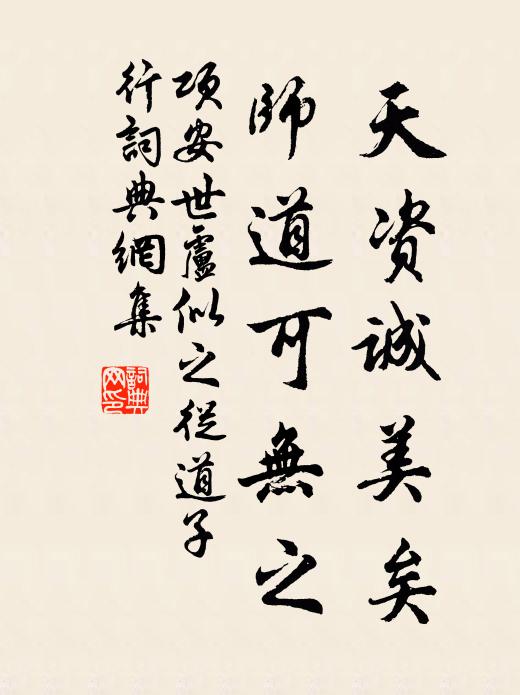 天資誠美矣
師道可無之
項安世盧似之從道子
行詞典網集
詞典
网印